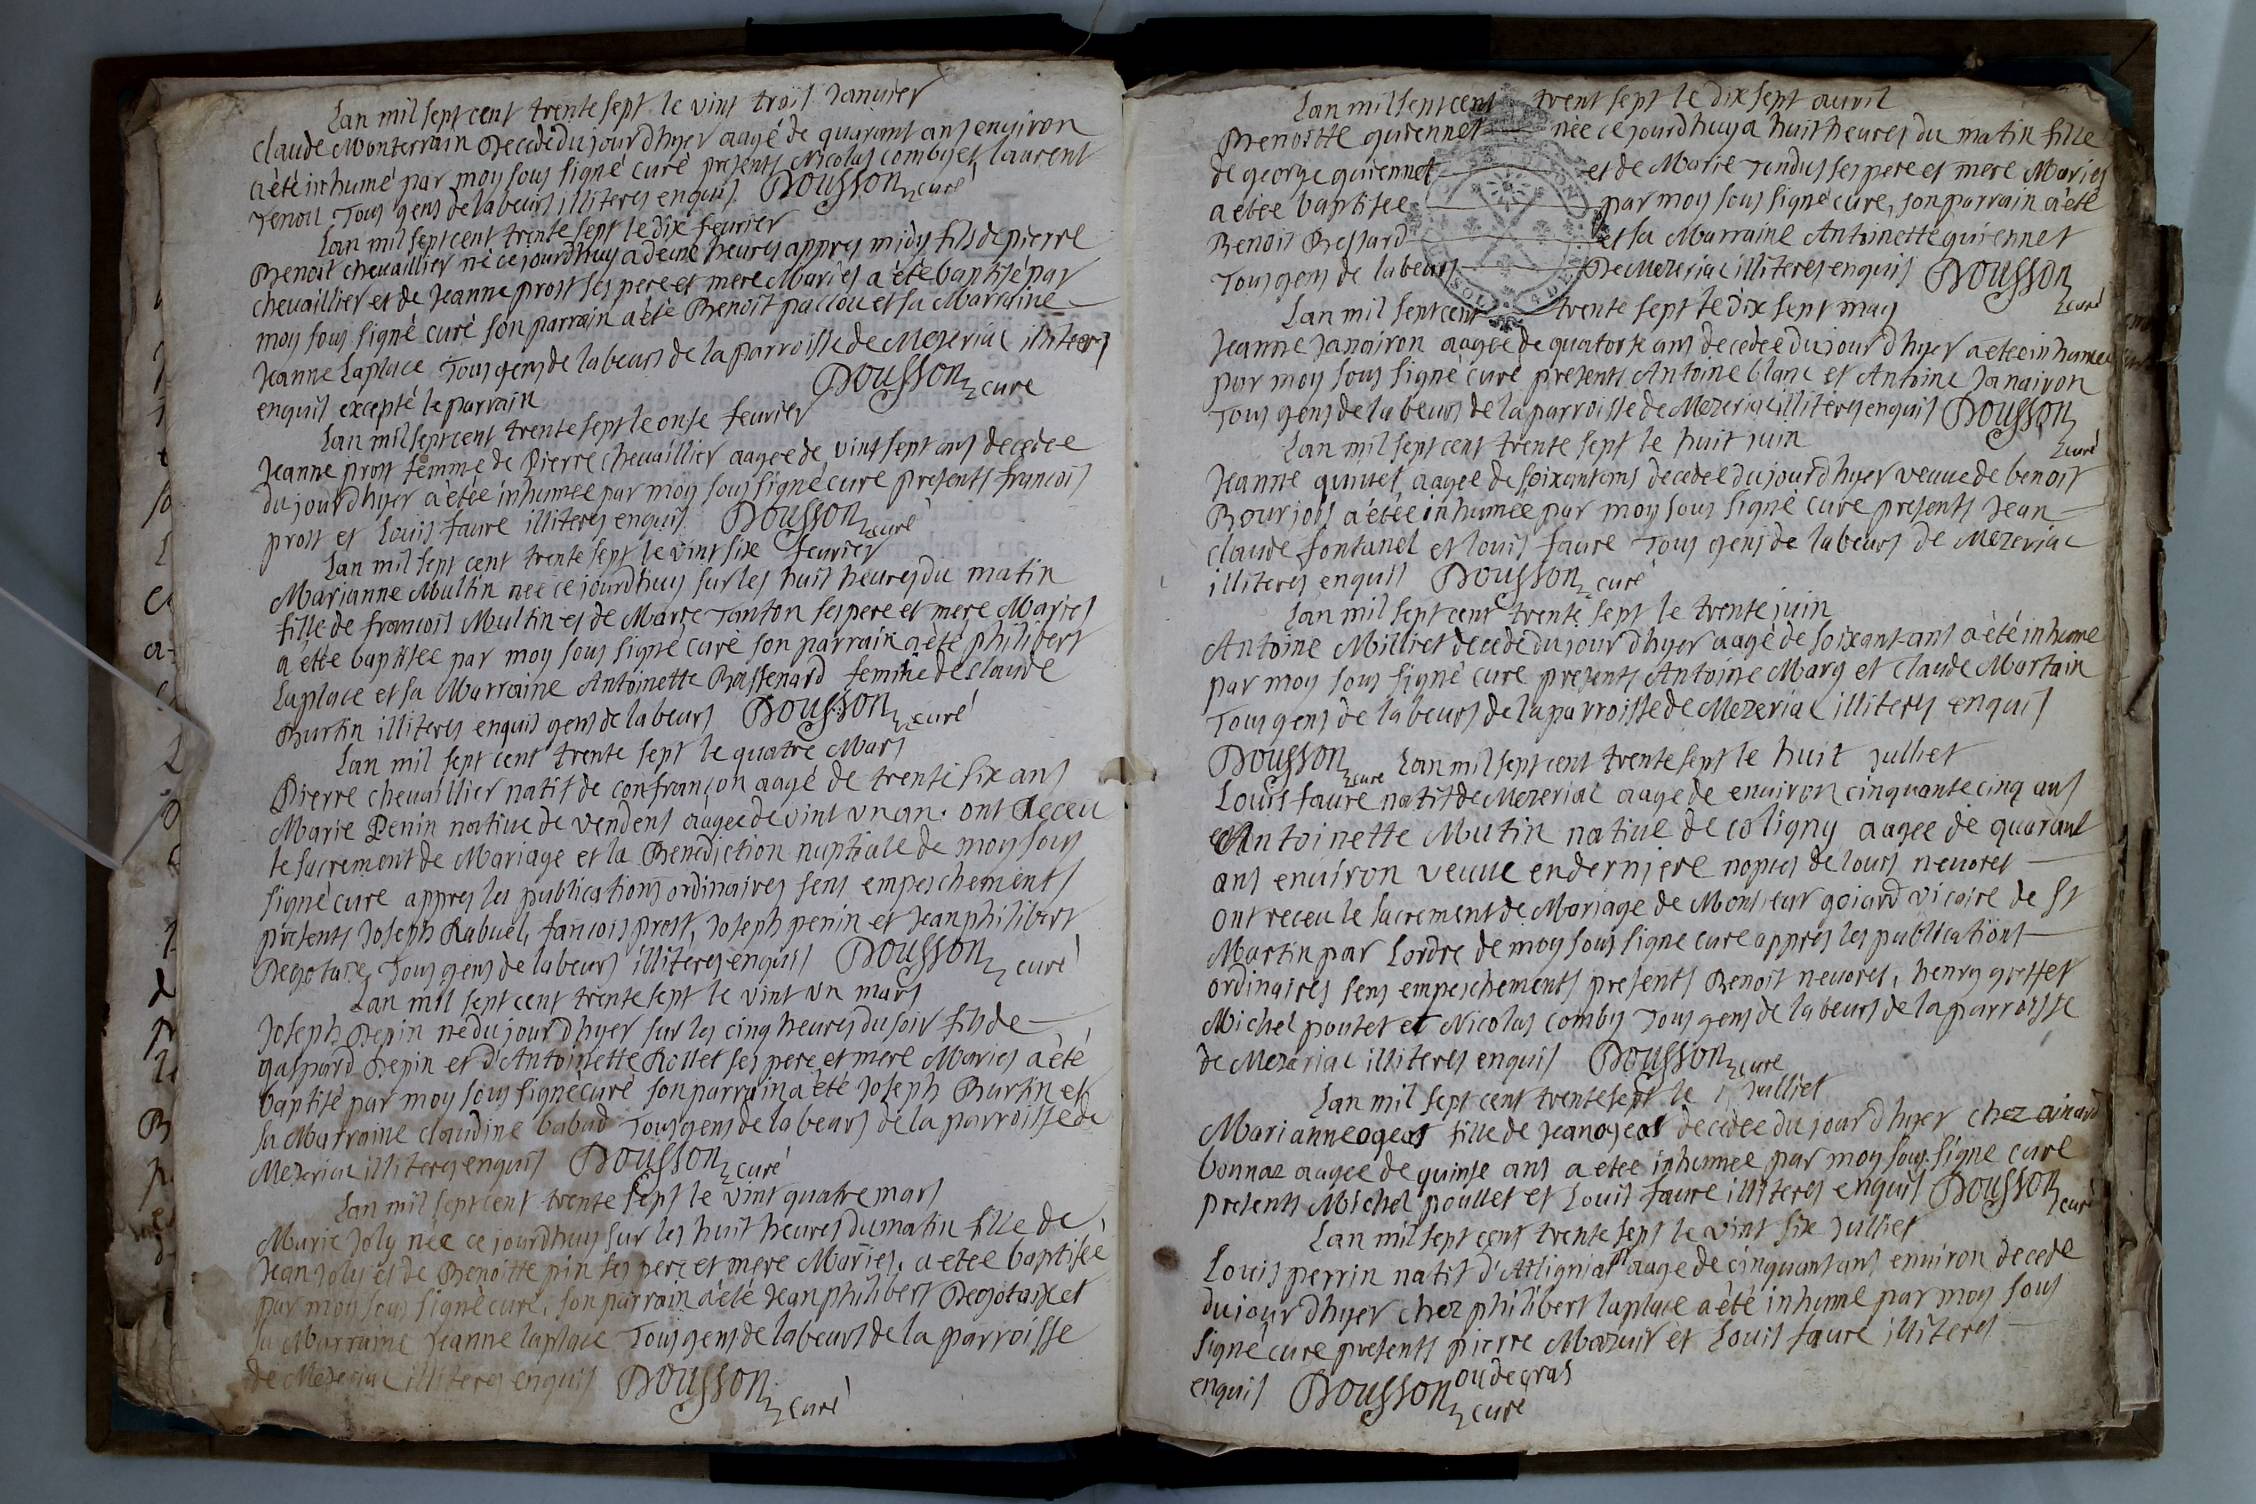 Lan mil sept cent trente sept le vint trois Janvier
Claude Monterrain Decedé du jour dhyer aagé de quarant ans environ
a été inhumé par moy sous signé curé presents Nicolas Combys et laurent
Tenoil Tous gens de labeurs illiteres enquis Dousson curé
Lan mil sept cent trente sept le dix fevrier
Benoit chevaillier né ce jourdhuy a deux heures appres midy fils de pierre
chevaillier et de Jeanne prost ses pere et mere Mariés a été baptisé par
moy sous signé curé son parrain a été Benoit paccou et sa Marraine
Jeanne Laplace Tous gens de labeurs de la parroisse de Mezeriac illiteres
enquis excepté le parrain Dousson curé
Lan mil sept cent trente sept le onse fevrier
Jeanne prost femme de Pierre chevaillier aagee de vint sept ans decedee
du jourdhyer a étée inhumee par moy sous signé curé presents francois
prost et Louis faure illiteres enquis Dousson curé
Lan mil sept cent trente sept le vint six fevrier
Marianne Multin neé ce jourdhuy sur les huit heures du matin
fille de francois Multin et de Marie Tonton ses pere et mere Mariés
a étée baptisee par moy sous signé curé son parrain a été philibert
Laplace et sa Marraine Antoinette Bassenard femme de claude
Burtin illiteres enquis gens de labeurs Dousson curé
Lan mil sept cent trente sept le quatre Mars
Pierre chevaillier natif de confrançon aagé de trente six ans
Marie Penin native de vendens aagée de vint un an. ont Receu
le sacrement de Mariage et la Benediction nuptiale de moy sous
signé curé appres les publications ordinaires sens empeschements
presents Joseph Rabuel, fancois prost, Joseph penin et Jean philibert
Degotaix, Tous gens de labeurs illiteres enquis Dousson curé
Lan mil sept cent trente sept le vint un mars
Joseph Depin né du jour dhyer sur les cinq heures du soir fils de
gaspard Depin et d'Antoinette Rollet ses pere et mere Mariés a été
baptisé par moy sous signé curé son parrain a été Joseph Burtin et
sa Marraine claudine babad Tous gens de labeurs de la parroisse de
Mezeriac illiteres enquis Dousson curé
Lan mil sept cent trente sept le vint quatre mars
Marie Joly neé ce jourdhuy sur les huit heures du matin fille de
Jean Joly et de Benoitte pin ses pere et mere Mariés. a etee baptisée
par moy sous signé curé, son parrain a été Jean philibert Degotaix et
sa Marraine Jeanne laplace Tous gens de labeurs de la parroisse
de Mezeriac illiteres enquis Dousson curé
Lan mil sept cent trent sept le dix sept avril
Benoitte guiennet née ce jourdhuy a huit heures du matin fille
de george guiennet et de Marie Tondus ses pere et mere Mariés
a etee baptisee par moy sous signé curé, son parrain a été
Benoit Bessard et sa Marraine Antoinette guiennet
Tous gens de labeurs De Mezeriac illiteres enquis Dousson curé
Lan mil sept cent trente sept le dix sept may
Jeanne Janoiron aagee de quatorse ans decedee du jour dhyer a etee inhumee
par moy sous signé curé presents Antoine blanc et Antoine Janairon
Tous gens de labeurs de la parroisse de Mezeriac illiteres enquis Dousson curé
Lan mil sept cent trente sept le huit juin
Jeanne aagee de soixant ans decedee du jourdhyer veuve de benoit
Bourjois a étée inhumée par moy sous signé curé presents Jean
claude fontanel et louis faure Tous gens de labeurs de Mezeriac
illiteres enquis Dousson curé
Lan mil sept cent trente sept le trente juin
Antoine Milliet decedé du jour dhyer aagé de soixant ans a été inhumé
par moy sous signé curé presents Antoine Mary et Claude Martain
Tous gens de labeurs de la parroisse de Mezeriac illiteres enquis
Dousson curé Lan mil sept cent trente sept le huit Julliet
Louis faure natif de Mezeriac aage de environ cinquante cinq ans
Antoinette Mutin native de coligny aagee de quarant
ans environ veuve en derniere nopces de louis nevoret
ont receu le sacrement de Mariage de Monsieur goiard vicaire de St
Martin par Lordre de moy sous signe cure apprés les publications
ordinaires sens empeschements presents Benoit nevoret, henry
Michel poulet et Nicolas Combys Tous gens de labeurs de la parroisse
de Mezeriac illiteres enquis Dousson curé
Lan mil sept cent trente sept le Julliet
Marianne ogeas fille de Jean ogeas decedee du jour dhyer chez ainard
bonnaz aagee de quinse ans a etee inhumee par moy sous signe curé
presents Michel poullet et Louis faure illiteres enquis Dousson curé
Lan mil sept cent trente sept le vint six Julliet
Louis perrin natif d'Attignat aage de cinquant ans environ decedé
du jour dhyer chez philibert laplace a été inhumé par moy sous
signé curé presents pierre Mazuir et Louis faure illiteres
enquis Dousson oudegras curé